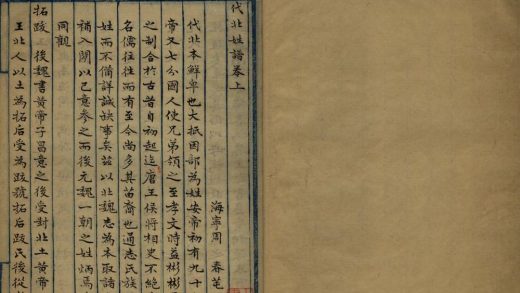 代北姓譜卷上
海寧周 春芚
代北本鮮卑也大抵因部為姓安帝初有九十
帝又七分國人使兄弟領之至孝文時益彬彬
之制合於古昔自初起迄唐王侯將相史不絶
名儒往往而有至今尚多其苗裔也通志氏族
姓而不備詳誠缺事矣茲以北魏志為本取諸
補入間以己意參之而後元魏一朝之姓炳焉
同觀
拓跋 後魏書黃帝子昌意之後受封北土黃帝
王北人以土為拓后受為跋號拓后跋氏後從